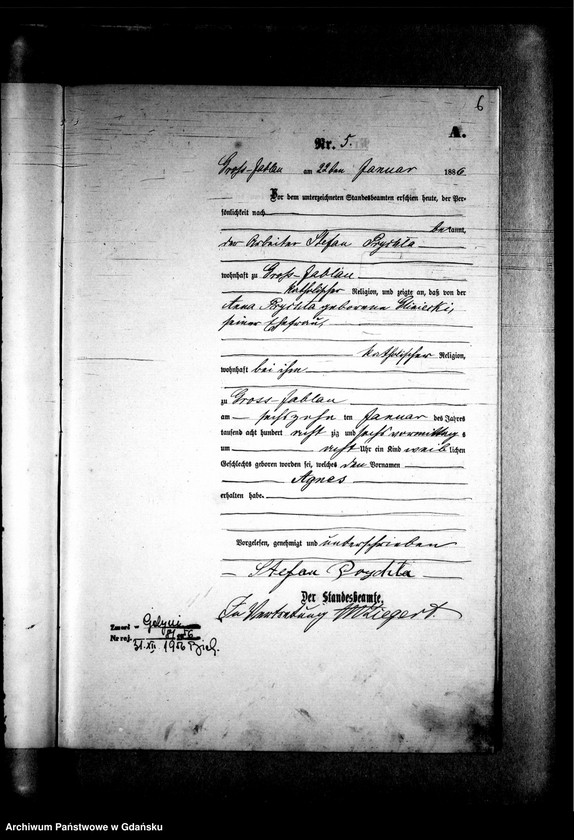 6
A.
Nr. 5.
Gross-Jablau am 22ten Januar 1886.
Vor dem unterzeichneten Standesbeamten erschien heute, der Per-
sönlichkeit nach
bekannt,
der Arbeiter Stefan
wohnhaft zu Gross-Jablau
katholischer Religion, und zeigte an, daß von der
Anna geborene
seiner Ehefrau,
katholischer Religion,
wohnhaft bei ihm
zu Gross-Jablau
am sechszehn ten Januar des Jahres
tausend acht hundert acht zig und sechs vormittags
um acht Uhr ein Kind weiblichen
Geschlechts geboren worden sei, welches den Vornamen
Agnes
erhalten habe.
Vorgelesen, genehmigt und unterschrieben
Stefan
Der Standesbeamte,
In Vertretung
Zmarł
Nr rej.
31. XII 1956
Archiwum Państwowe w Gdańsku